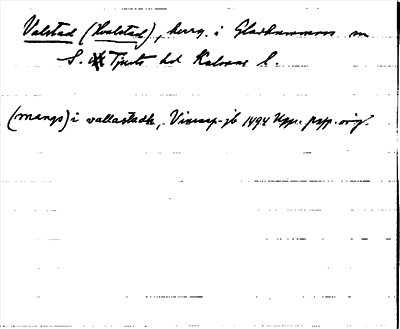 Valstad (Hvalstad), herrg. i Gladhammars sn
S. Tjusts hd Kalmar l.
(mangs) i vallastadh, Vinarp-jb 1494 Upps. papp. orig.